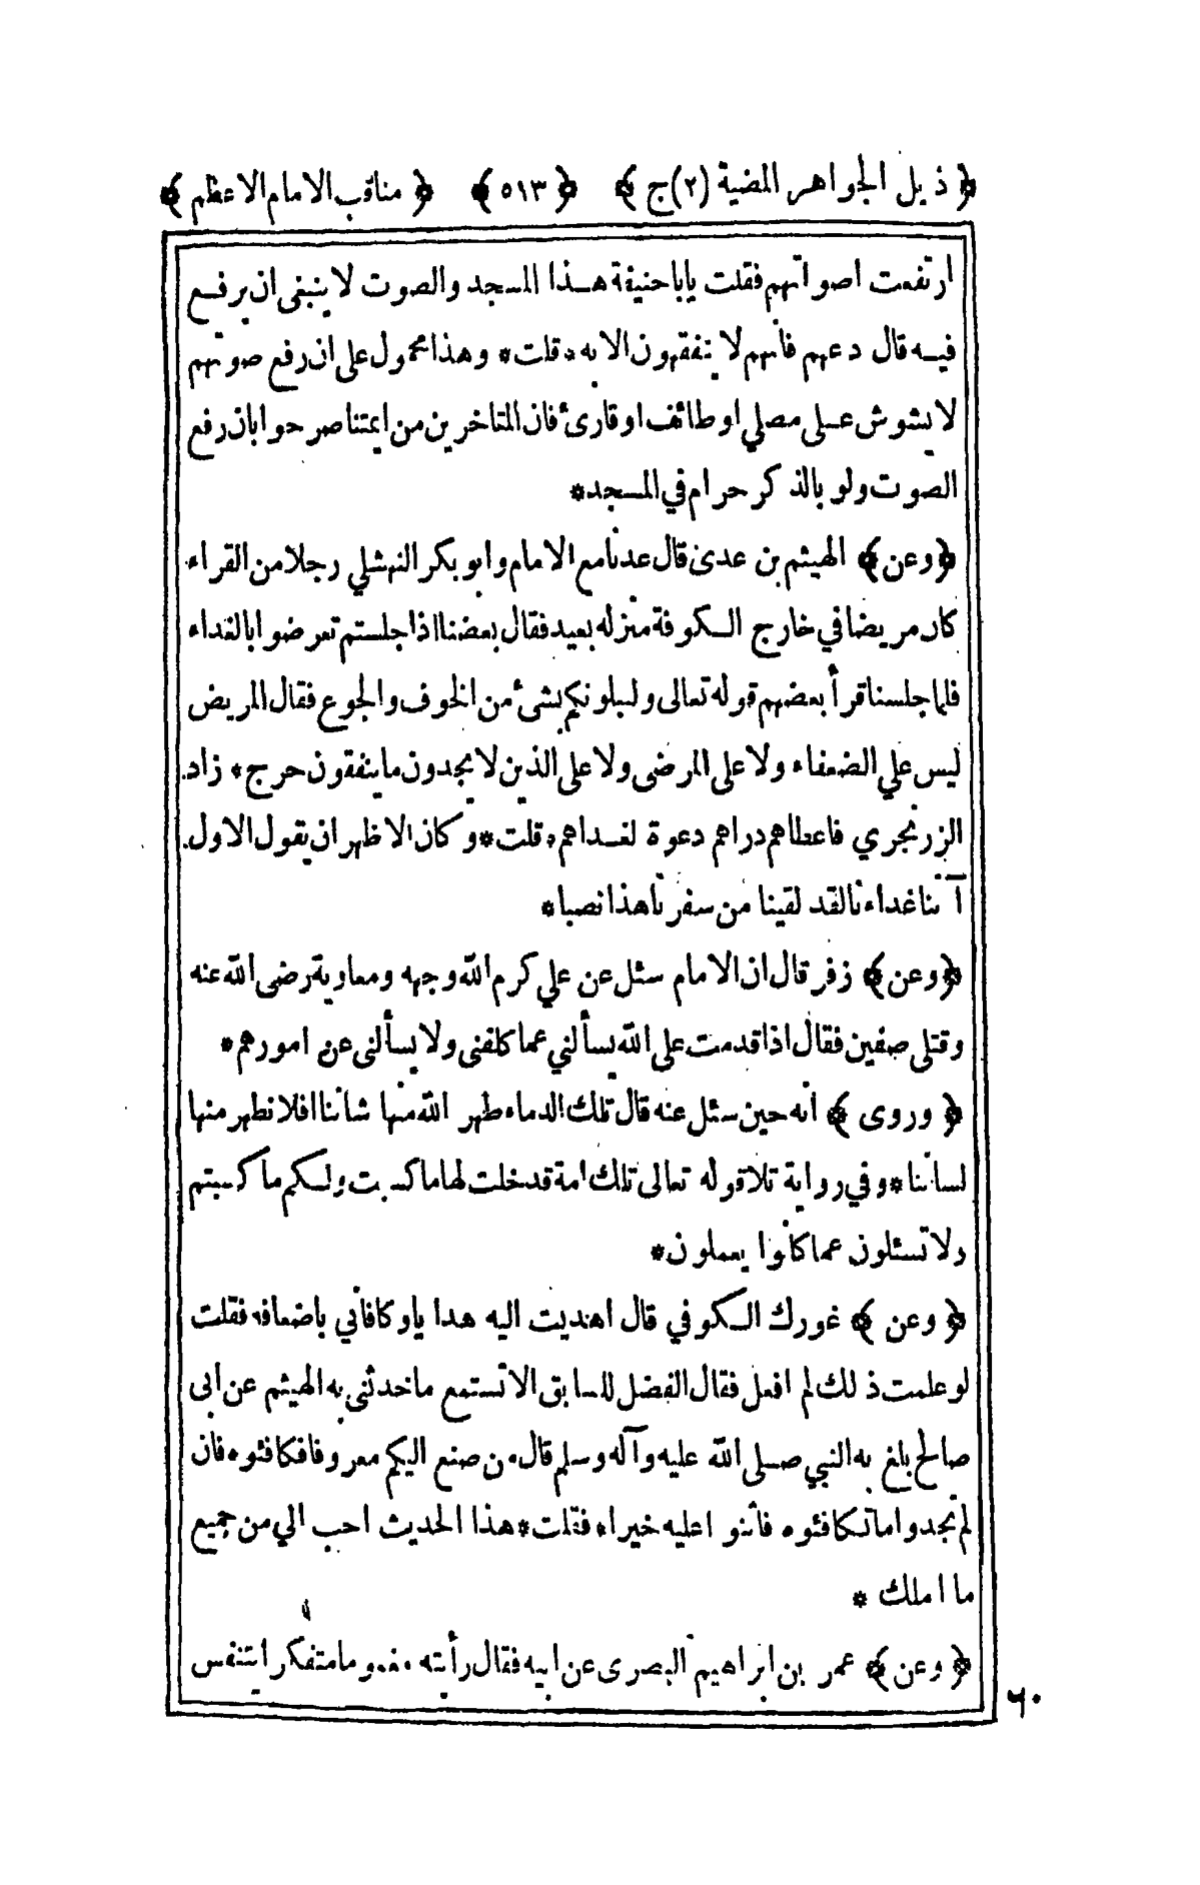 ﴿ ذيل الجواهر المضية (٢) ج ﴾ ﴿ ٥١٣ ﴾ ﴿ مناقب الامام الاعظم ﴾
ارتفعت اصواتهم فقلت ياباحنيفة هذا المسجد والصوت لا ينبغى ان يرفع
فيه قال دعهم فانهم لا يتفقهون الا به * قلت * وهذا محمول على ان رفع صوتهم
لا يشوش على مصلي او طائف او قارئ فان المتاخرين من ايمتنا صرحوا بان رفع
الصوت ولو بالذكر حرام في المسجد *
﴿ وعن ﴾ الهيثم بن عدى قال عدنا مع الامام وابو بكر النهشلي رجلا من القراء
كان مريضا في خارج الكوفة منزله بعيد فقال بعضنا اذا جلستم تعرضوا بالغداء
فلما جلسنا قرأ بعضهم قوله تعالى ولنبلونكم بشئ من الخوف والجوع فقال المريض
ليس علي الضعفاء ولا على المرضى ولا على الذين لا يجدون ما ينفقون حرج * زاد
الزرنجري فاعطاهم دراهم دعوة لغداهم * قلت * وكان الاظهر ان يقول الاول
آتنا غداءنا لقد لقينا من سفرنا هذا نصبا *
﴿ وعن ﴾ زفر قال ان الامام سئل عن علي كرم الله وجهه ومعاوية رضى الله عنه
وقتلى صفين فقال اذا قدمت على الله يسألني عما كلفنى ولا يسألنى عن امورهم *
﴿ وروى ﴾ انه حين سئل عنه قال تلك الدماء طهر الله منها شاننا افلا نطهر منها
لساننا * وفي رواية تلا قوله تعالى تلك امة قد خلت لها ما كسبت ولكم ما كسبتم
ولا تسئلون عما كانوا يعملون *
﴿ وعن ﴾ غورك الكوفي قال اهديت اليه هدا يا وكافأني باضعافه فقلت
لو علمت ذلك لم افعل فقال الفضل للسابق الا تستمع ما حدثنى به الهيثم عن ابى
صالح بلغ به النبي صلى الله عليه وآله وسلم قال من صنع اليكم معروفا فكافئوه فان
لم تجدوا ما تكافئوه فاثنوا عليه خيرا * فقلت * هذا الحديث احب الي من جميع
ما املك *
﴿ وعن ﴾ عمر بن ابراهيم البصرى عن ابيه فقال رأيته مغموما متفكرا يتنفس